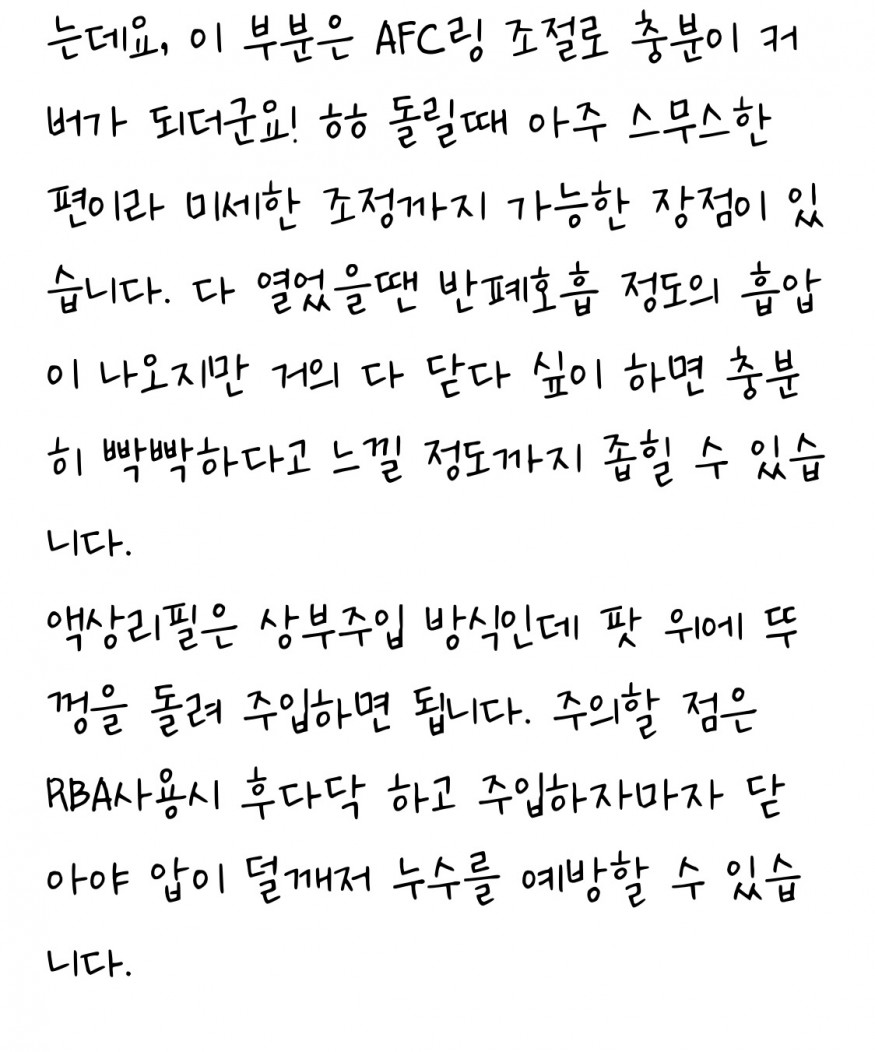 는데요, 이 부분은 AFC링 조절로 충분이 커
버가 되더군요! ㅎㅎ 돌릴때 아주 스무스한
편이라 미세한 조정까지 가능한 장점이 있
습니다. 다 열었을땐 반폐호흡 정도의 흡압
이 나오지만 거의 다 닫다 싶이 하면 충분
히 빡빡하다고 느낄 정도까지 좁힐 수 있습
니다.
액상리필은 상부주입 방식인데 팟 위에 뚜
껑을 돌려 주입하면 됩니다. 주의할 점은
RBA사용시 후다닥 하고 주입하자마자 닫
아야 압이 덜깨저 누수를 예방할 수 있습
니다.